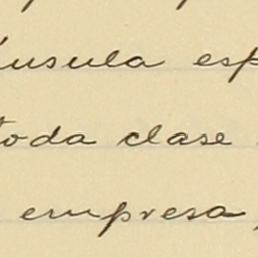 áusula esp
toda clase
empresa,